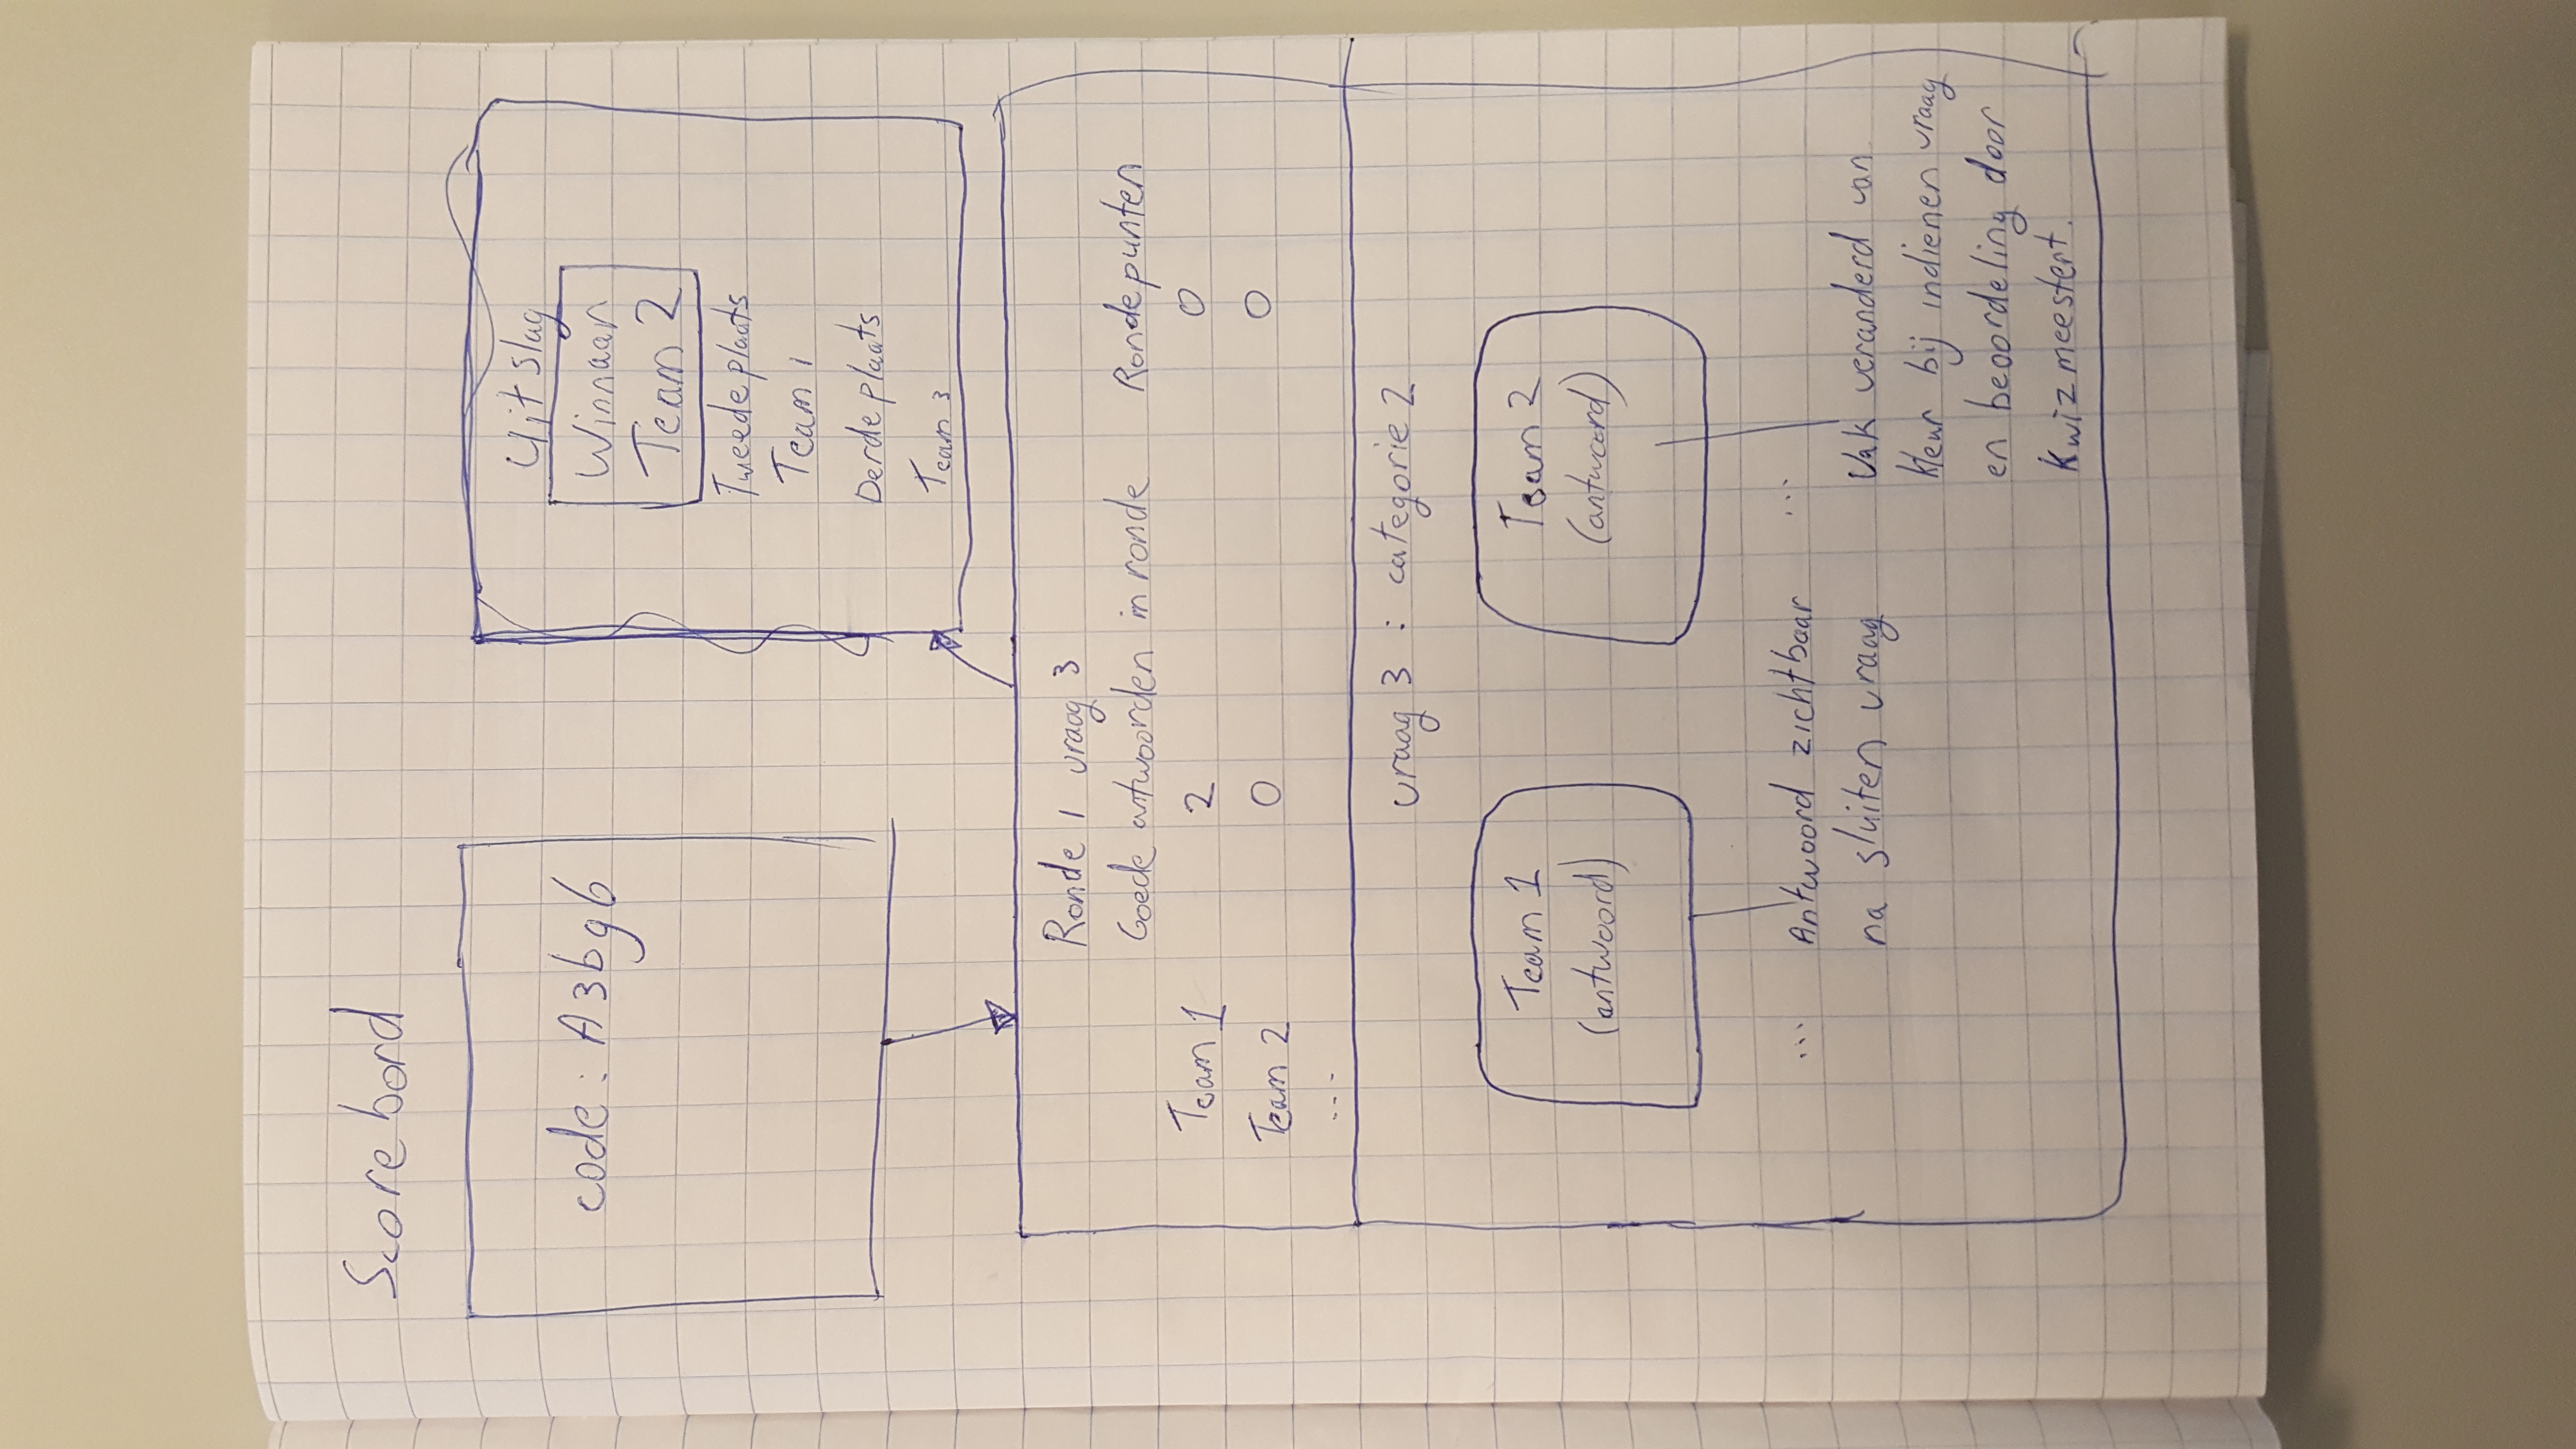 Scorebord
code: A3bg6
Uitslag
Winnaar
Team 2
Tweede plaats
Team 1
Derde plaats
Team 3
Ronde 1 vraag 3
Goede antwoorden in ronde Ronde punten
Team 1 2 0
Team 2 0 0
...
vraag 3 : categorie 2
Team 1
(antwoord)
Team 2
(antwoord)
... Antwoord zichtbaar
na sluiten vraag
...
Vak veranderd van
kleur bij indienen vraag
en beoordeling door
Kwizmeestert.